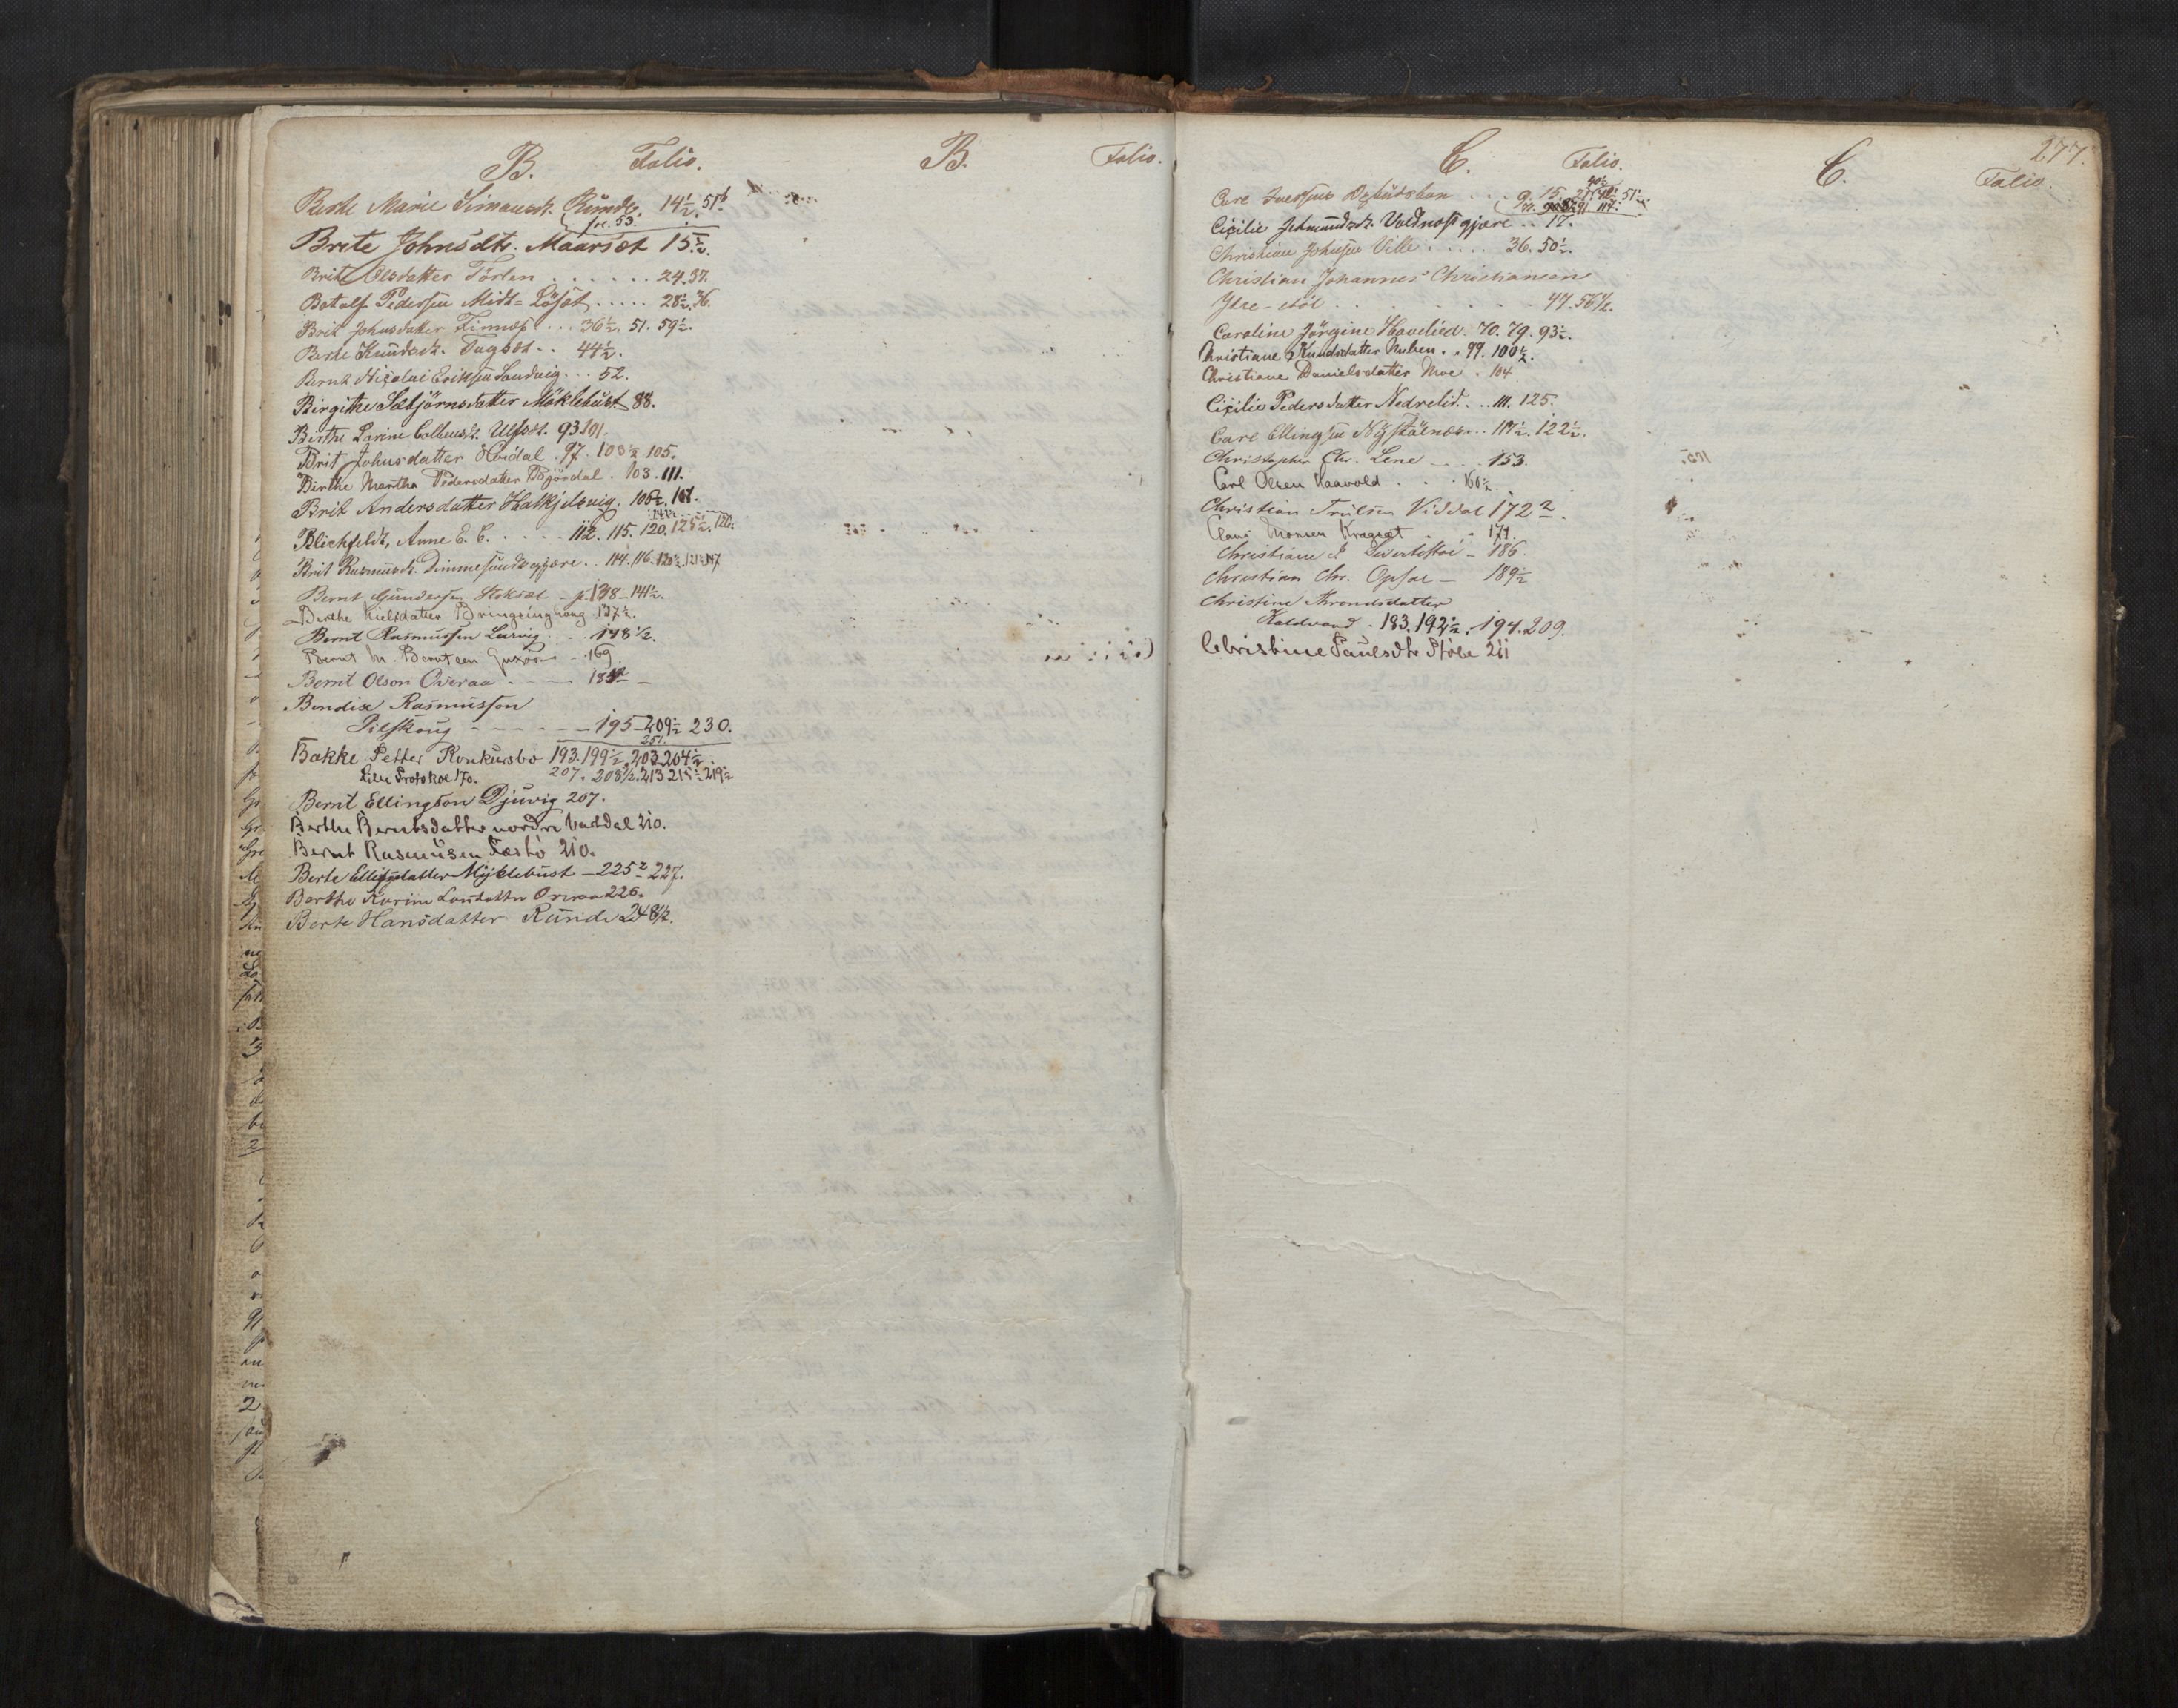 B. Folio. B. Folio.
Berte Marie Simonsdt. Runde. 14½. 51½
fr. 53.
Brete Johnsdtr. Maarsæt 15½.
Brite Olsdatter Törlen . . . . . . 24. 37.
Botolf Pedersen Midt-Löset . . . . . 28½. 36.
Brit Johnsdatter Finnes . . . 36½. 51. 59½.
Berte Knudsdt. . . 44½.
Bernt Nicolai Eriksen Sandvig . . . 52.
Birgithe Sæbjörnsdatter Möklebust 88.
Birthe Larine Ulfsæt. 93. 101.
Brit Johnsdatter Hovdal. 97. 103½ 105.
Birthe Martha Pedersdatter Bjørdal. 103. 111.
Brit Andersdatter Hatkjelsvig. 106½. 107.
Blichfeldt, Anne E. C. . . . . . 112. 115. 120. 125½. 120.
Brit Rasmusdt. Dimmesundsgjære. . 114. 116. 120½.
Bernt Gundersen Stoksæt - p. 138 - 141½.
Berthe Nielsdatter Bringsinghaug 137½.
Bernt Rasmussen Larvig . . . 148½.
Bernt M. Berntsen - 169
Bernt Olson Overaa - - - -
Bendix Rasmusson
Pilskoug - - - - - - 195 - 209½ 230.
251.
Bakke Petter Konkursbo 193. 199½. 203. 204½.
Lille Protokol 170. 207. 208½. 213 215½ 219½
Bernt Ellingson Djuvig 207.
Berthe Berntsdatter nordre Vartdal 210.
Bernt Rasmusen Festö 210.
Berte Ellefsdatter Myklebust - 225½ 227.
Berthe Karine Larsdatter Overaa 226.
Berte Hansdatter Runde 248½.
277.
C. Folio. C. Folio.
Care Iversen . . . 9. 15. 51½
Cicilie Jetmundsdt. Voldnæsgjære . . 17.
Christian Johnsen Ville . . . . . 36. 50½.
Christian Johannes Christiansen
Ytre-stöl . . . . . . 47. 56½.
Caroline Jörgine Havelied. 70. 79. 93½.
Christiane Knudsdatter Nupen. . 99. 100½.
Christiane Danielsdatter Moe. 104
Cicilie Pedersdatter Nedrelid. . . 111. 125.
Carl Ellingsen Nystölnæs . . . 117½. 122½.
Christopher Chr. Lene - . . 153.
Carl Olsen Haavold . . . 160½.
Christian Trulsen Viddal 172½.
Claus Monsen Kragsæt . . 171.
Christiane - 186.
Christian Chr. Opsal - 189½
Christine Throndsdatter
Kaldvand. 183. 192½. 194. 209.
Christine Paulsdtr Støle 211